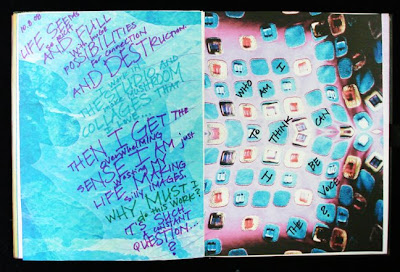 10.8.08
LIFE SEEMS
so RICH
AND FULL
WITH huge
POSSIBILITIES
for connection
AND DESTRUCTION.
AND
COLLAGE
THAT
THEN I GET THE
overwhelming
SENSE I AM just
wasting MY
LIFE MAKING
silly IMAGES.
WHY MUST I
do this WORK?
IT'S SUCH
A CONSTANT
QUESTION...
?
WHO AM I
TO THINK I CAN
BE
THE VOICE?